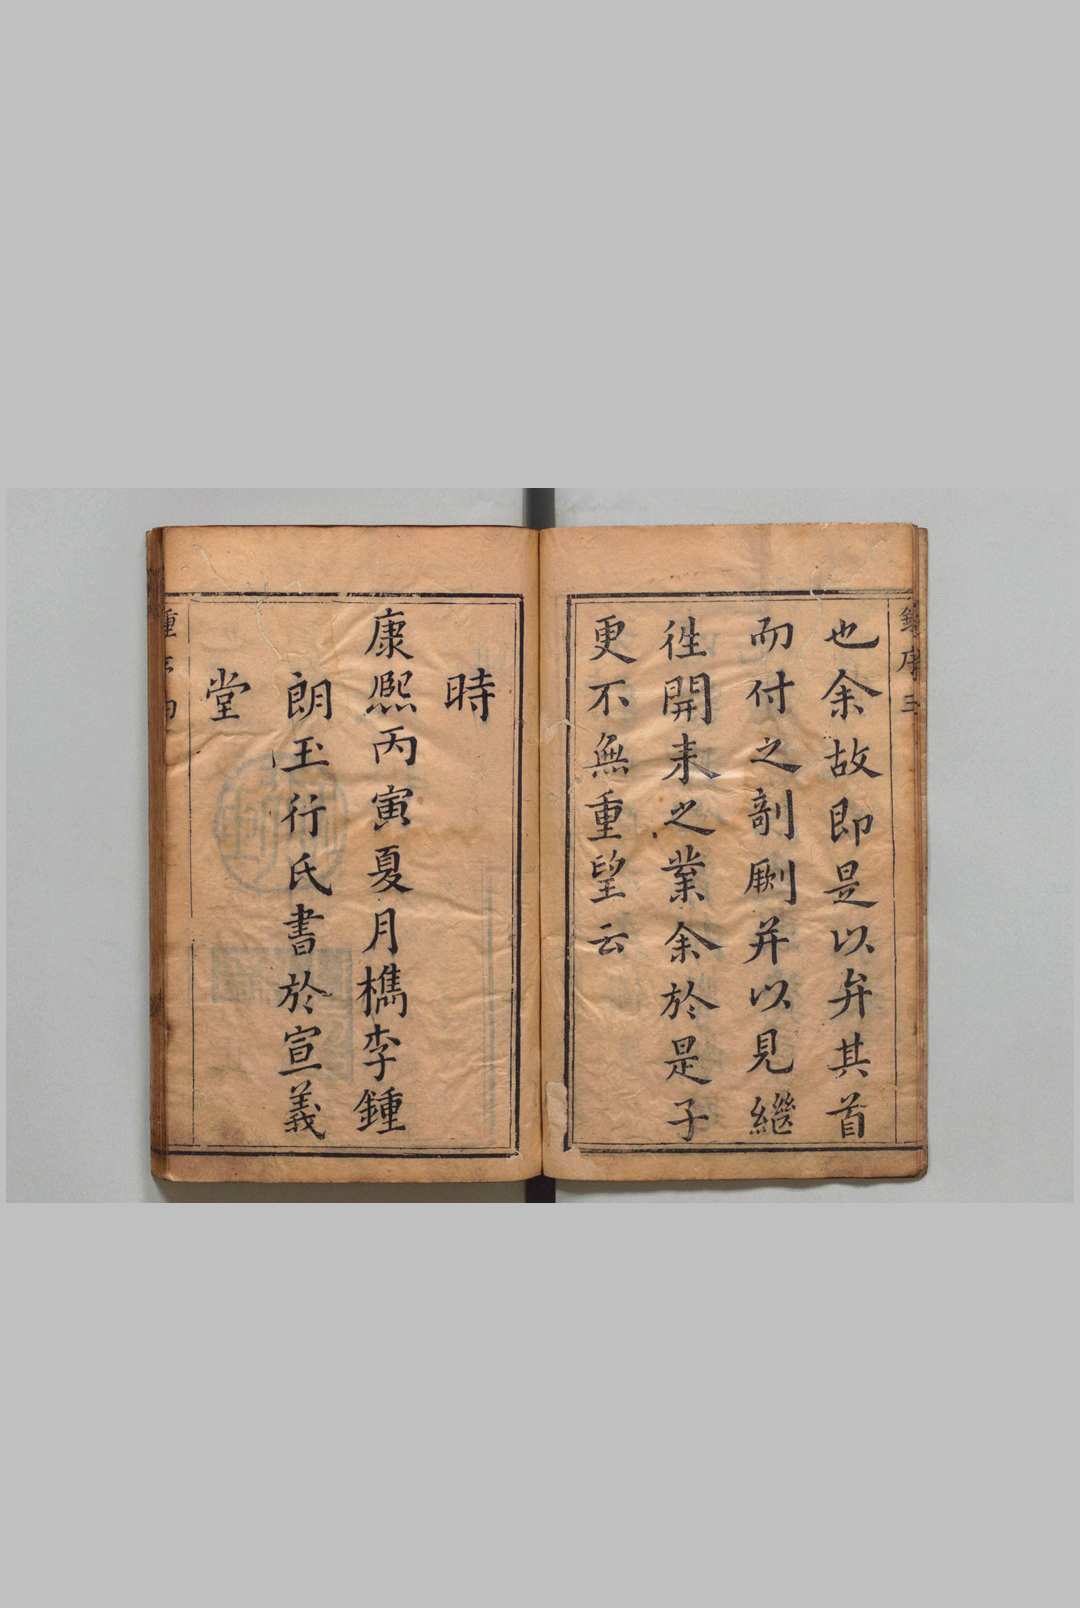 也余故即是以弁其首
而付之剞劂并以見繼
徃開来之業余於是子
更不無重望云
時
康熙丙寅夏月檇李鍾
朗玉行氏書於宣義
堂